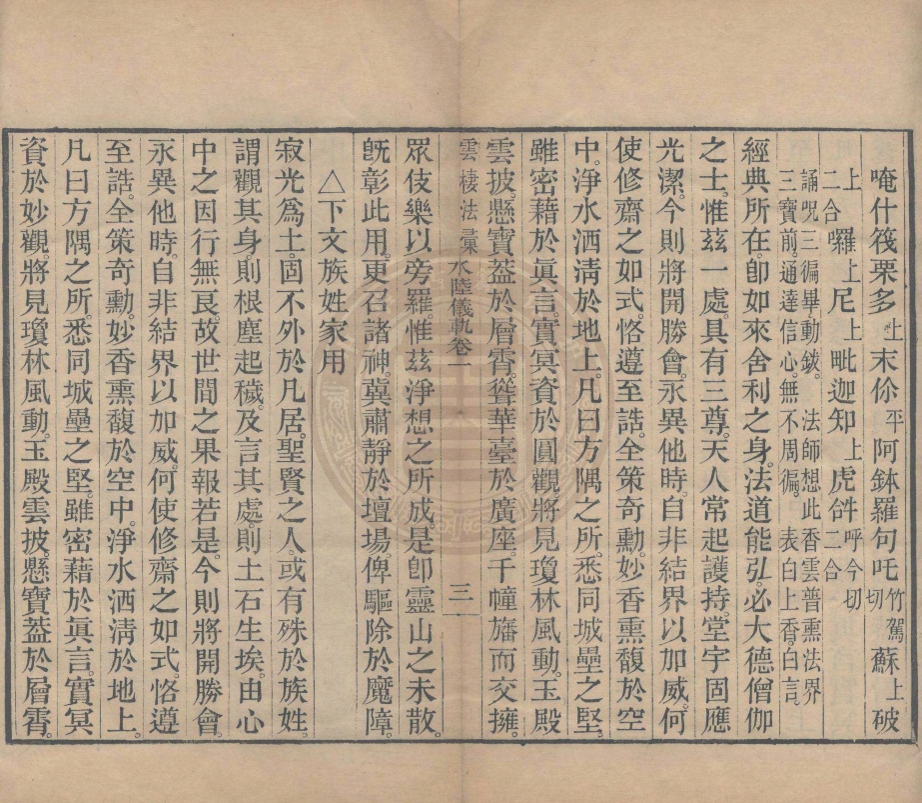 唵什筏栗多上末你平阿鉢羅句吒竹駕切蘇上破
上二合囉上尼上毗迦知上虎𤙖呼今切二合
誦呪三徧畢動鈸。法師想此香雲普熏法界
三寶前。通達信心。無不周徧。表白上香。白言。
經典所在。卽如來舍利之身。法道能引。必大德僧伽
之士。惟茲一處。具有三尊。天人常起護持。堂宇固應
光潔。今則將開勝會。永異他時。自非結界以加威。何
使修齋之如式。恪遵至誥。全策奇勳。妙香熏馥於空
中。淨水洒淸於地上。凡曰方隅之所。悉同城壘之堅。
雖密藉於眞言。實冥資於圓觀。將見瓊林風動。玉殿
雲披。懸寶葢於層霄。聳華臺於廣座。千幢旛而交擁。
雲棲法彙 水陸儀軌卷一 三
眾伎樂以旁羅。惟茲淨想之所成。是卽靈山之未散。
旣彰此用。更召諸神。冀肅靜於壇場。俾驅除於魔障。
△下文族姓家用
寂光爲土。固不外於凡居。聖賢之人。或有殊於族姓。
謂觀其身。則根塵起穢。及言其處。則土石生埃。由心
中之因行無良。故世間之果報若是。今則將開勝會。
永異他時。自非結界以加威。何使修齋之如式。恪遵
至誥。全策奇勳。妙香熏馥於空中。淨水洒淸於地上。
凡曰方隅之所。悉同城壘之堅。雖密藉於眞言。實冥
資於妙觀。將見瓊林風動。玉殿雲披。懸寶葢於層霄。